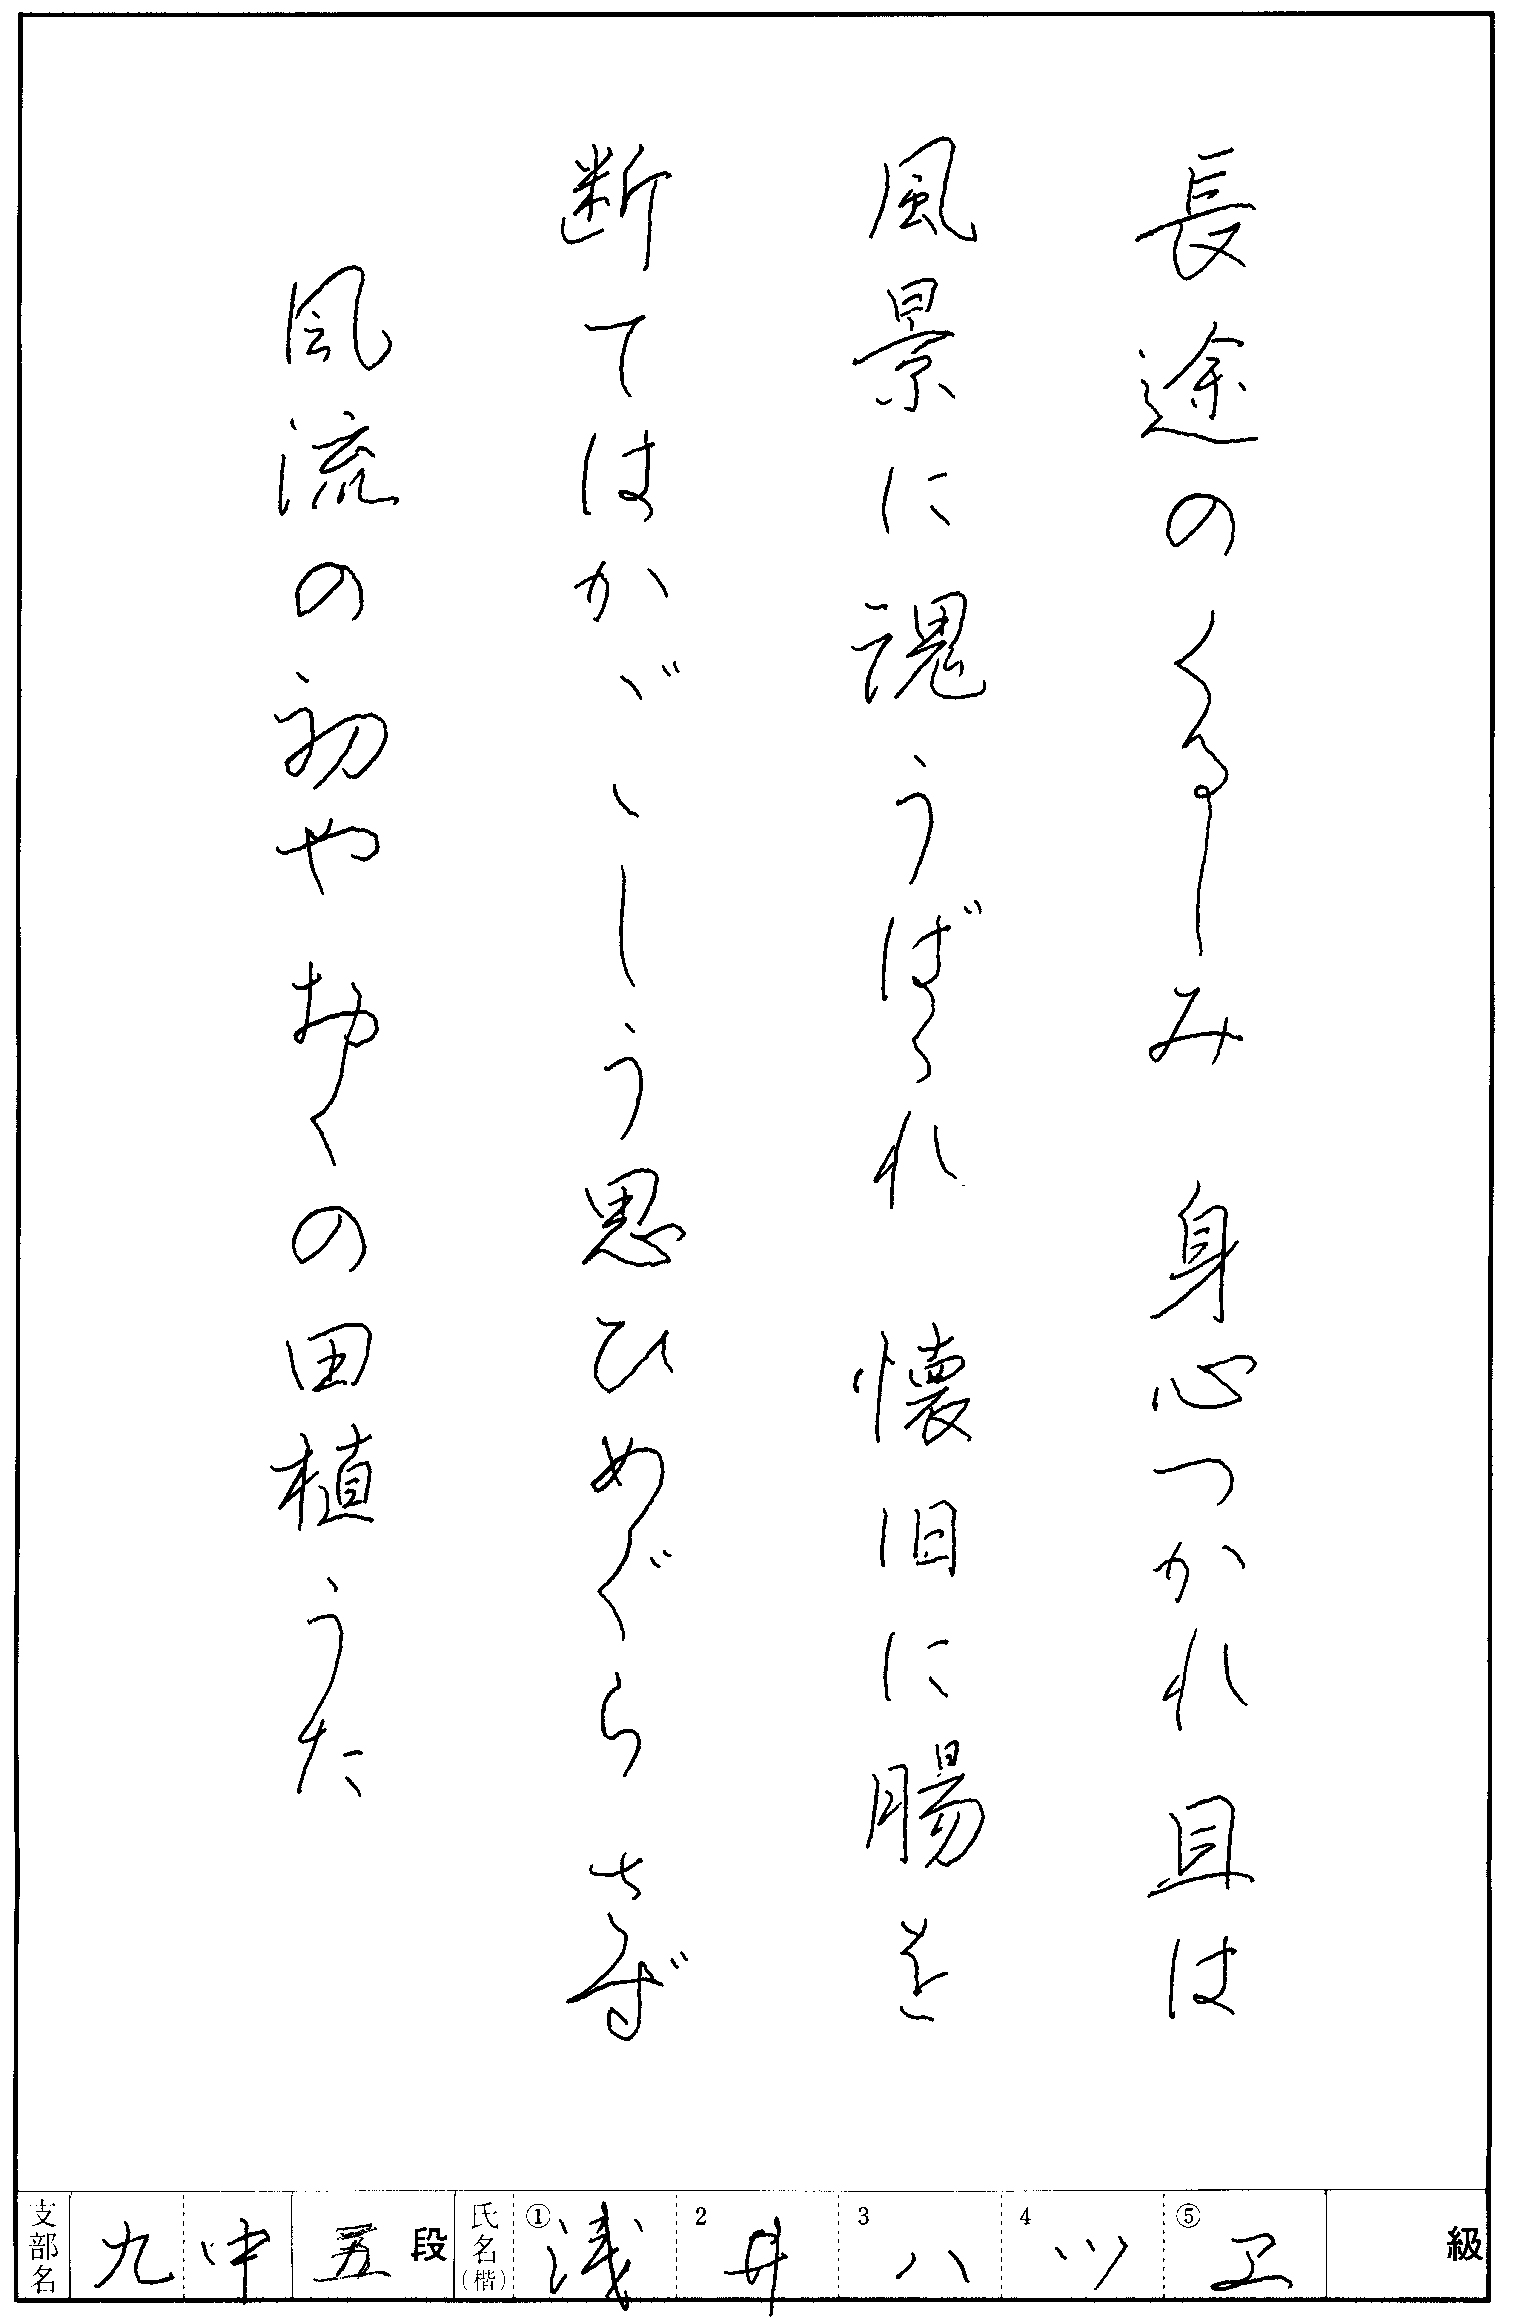 長途のくるしみ身心つかれ且は
風景に魂うばゝれ懐旧に腸を
断てはかゞゝしう思ひめぐらさず
風流の初やおくの田植うた
支部名 九中 五段 氏名(楷) ①浅 2井 3八 4ツ ⑤ヱ 級